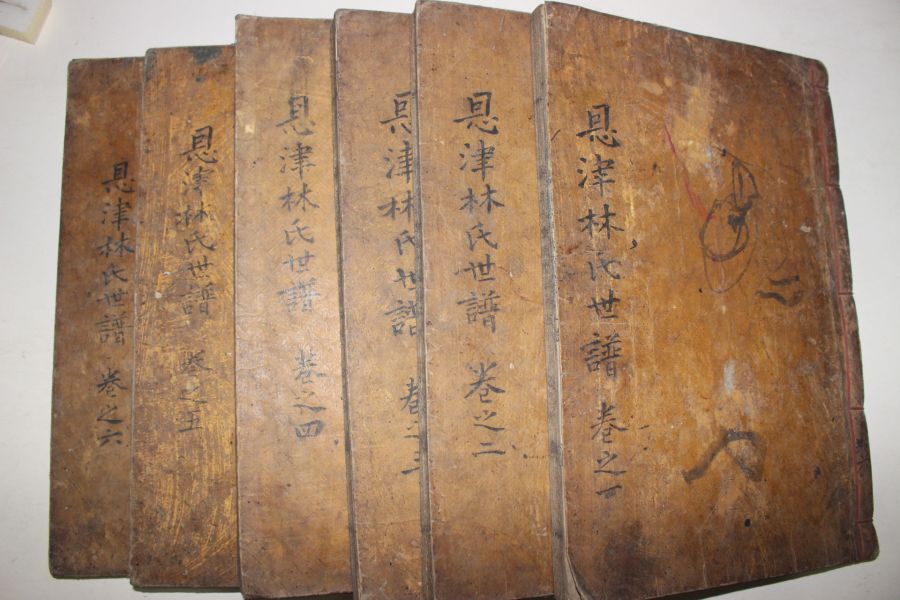 恩津林氏世譜 卷之一
恩津林氏世譜 卷之二
恩津林氏世譜 卷之三
恩津林氏世譜 卷之四
恩津林氏世譜 卷之五
恩津林氏世譜 卷之六